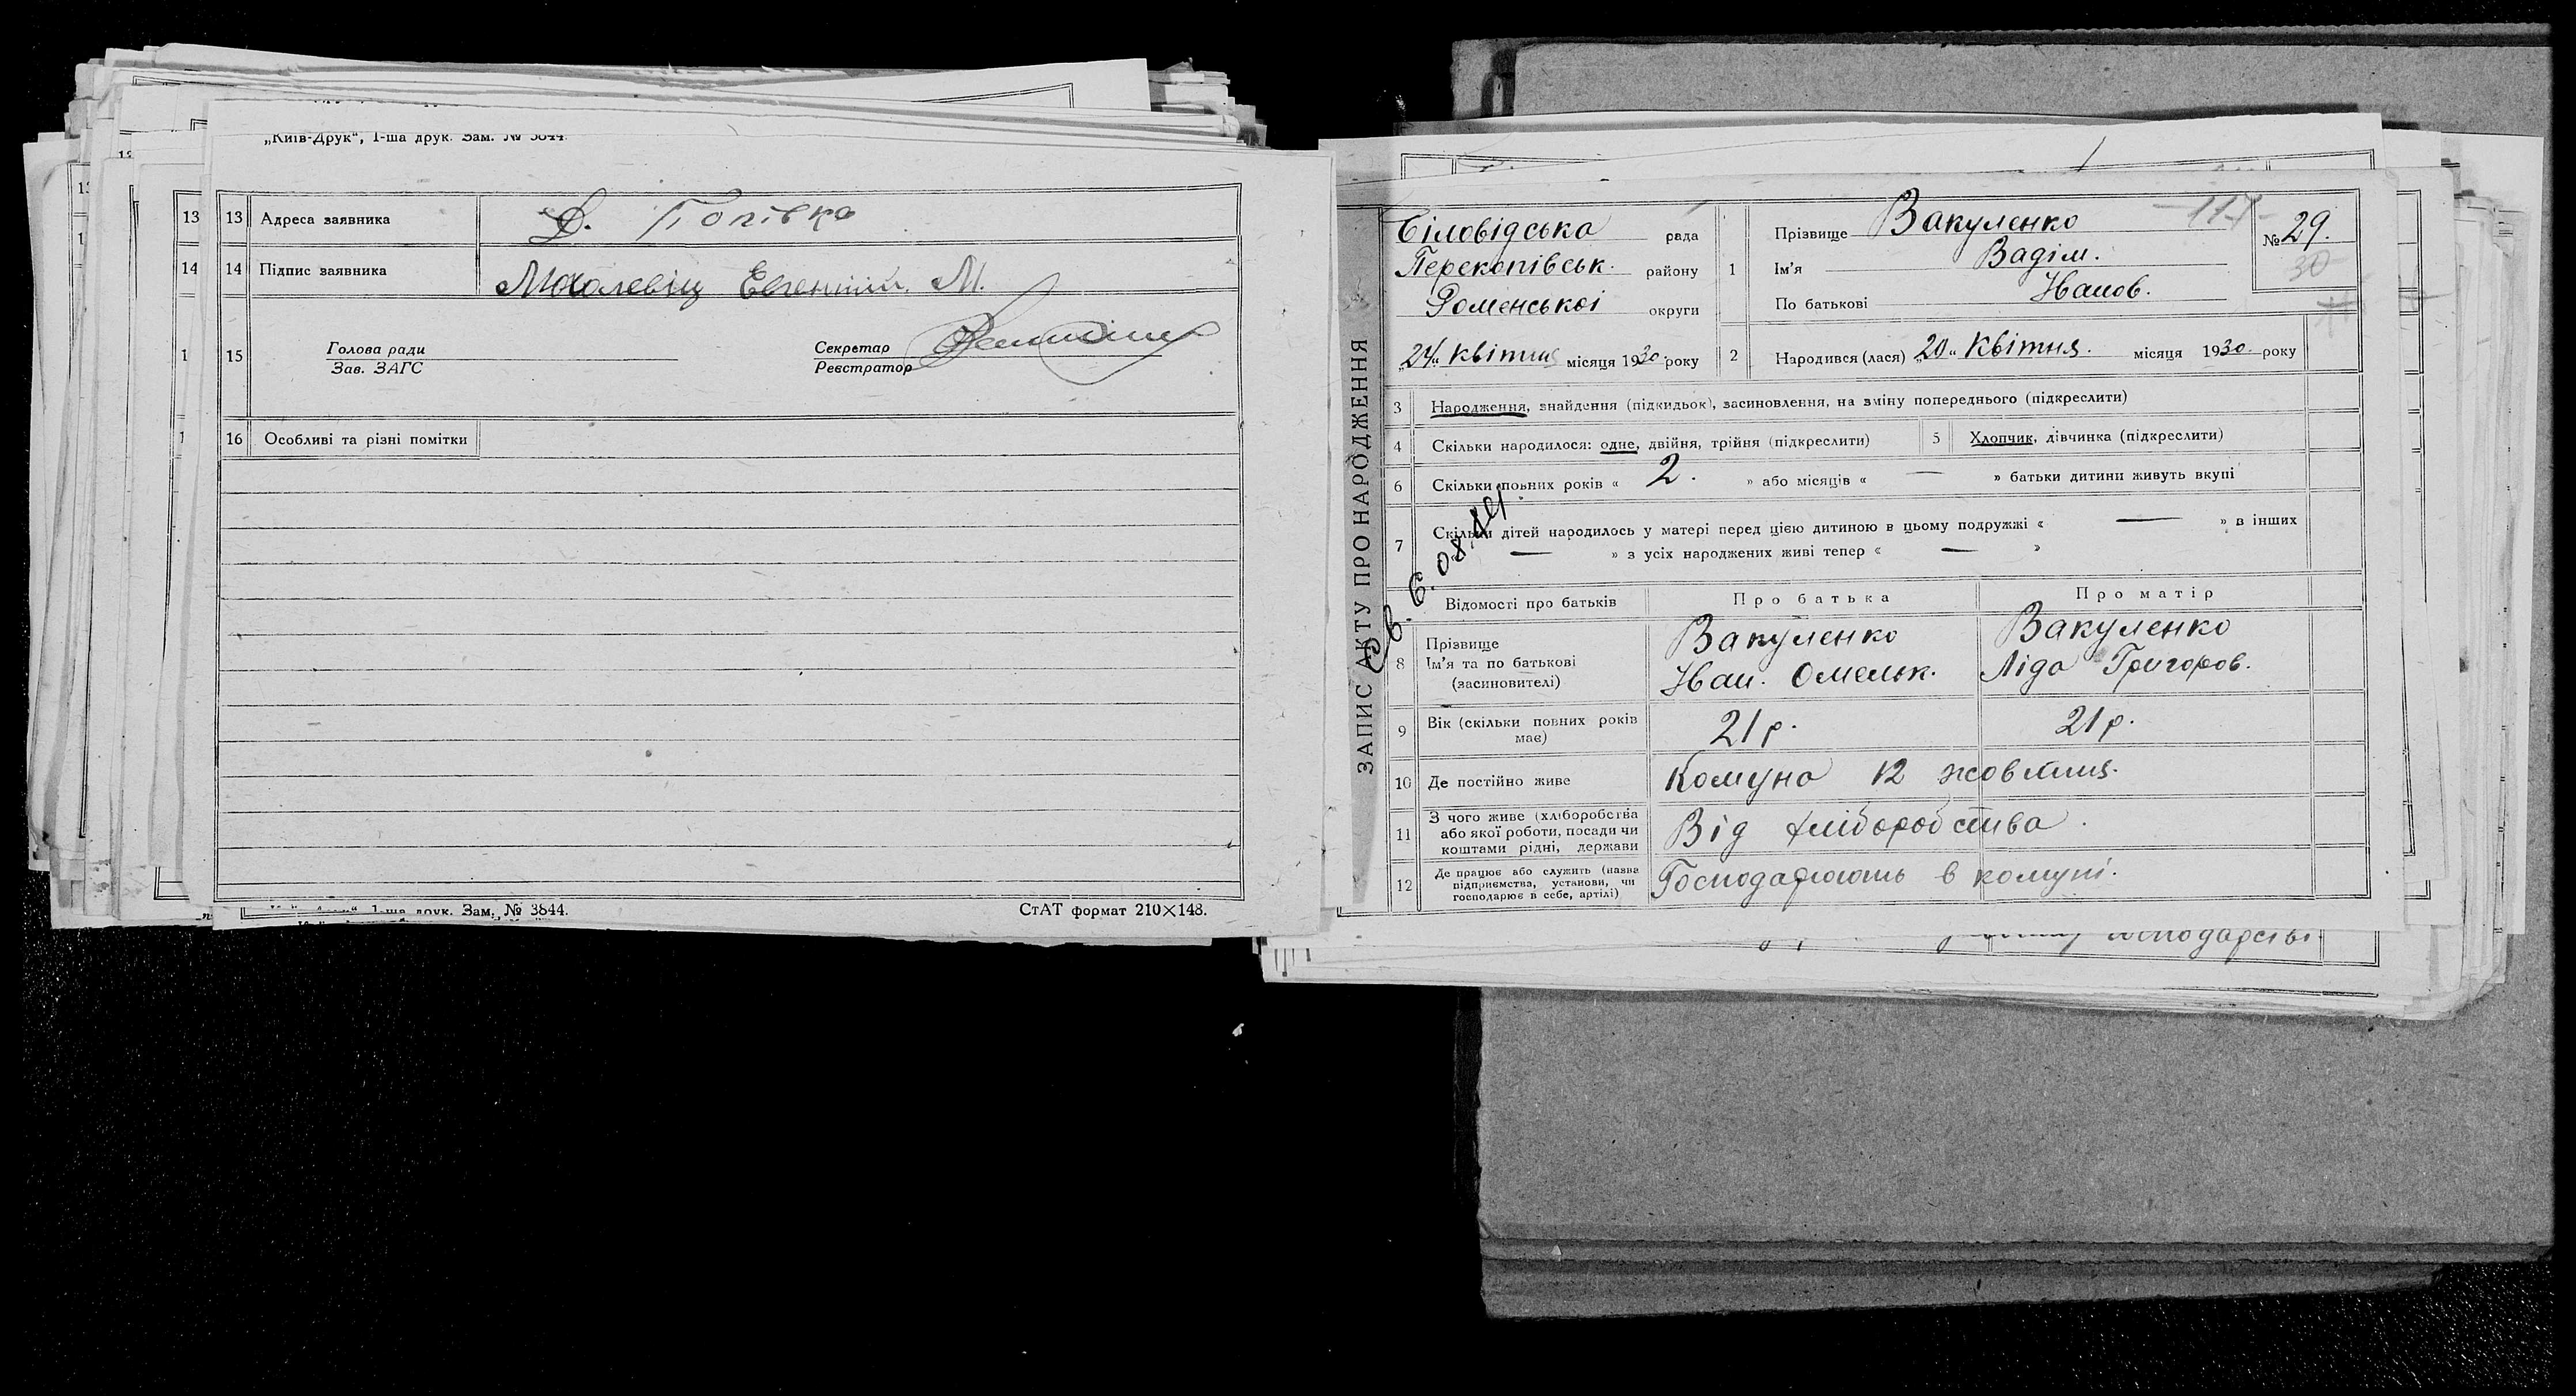 „Київ-Друк“, 1-ша друк. Зам. № 3844.
13 Адреса заявника Д. Попівка
14 Підпис заявника Евгеній М.
15 Голова ради Секретар
Зав. ЗАГС Реєстратор
16 Особливі та різні помітки
1-ша друк. Зам. № 3844. СтАТ формат 210×148.
ЗАПИС АКТУ ПРО НАРОДЖЕННЯ
Біловідська рада
Перекопівськ. району
Роменської округи
„24“ Квітня місяця 1930 року
1 Прізвище Вакуленко
Ім'я Вадім.
По батькові Іванов.
№ 29.
30
2 Народився (лася) „20“ Квітня. місяця 1930. року
3 Народження, знайдення (підкидьок), засиновлення, на зміну попереднього (підкреслити)
4 Скільки народилося: одне, двійня, трійня (підкреслити) 5 Хлопчик, дівчинка (підкреслити)
6 Скільки повних років « 2. » або місяців « — » батьки дитини живуть вкупі
7 Скільки дітей народилось у матері перед цією дитиною в цьому подружжі « — » в інших
— » з усіх народжених живі тепер « — »
Відомості про батьків Про батька Про матір
8 Прізвище Вакуленко Вакуленко
Ім'я та по батькові Іван. Омельк. Ліда Григоров.
(засиновителі)
9 Вік (скільки повних років має) 21 р. 21 р.
10 Де постійно живе Комуна 12 жовтня.
11 З чого живе (хліборобства
або якої роботи, посади чи
коштами рідні, держави
Від хліборобства.
12 Де працює або служить (назва
підприємства, установи, чи
господарює в себе, артілі)
Господарюють в комуні.
господарстві